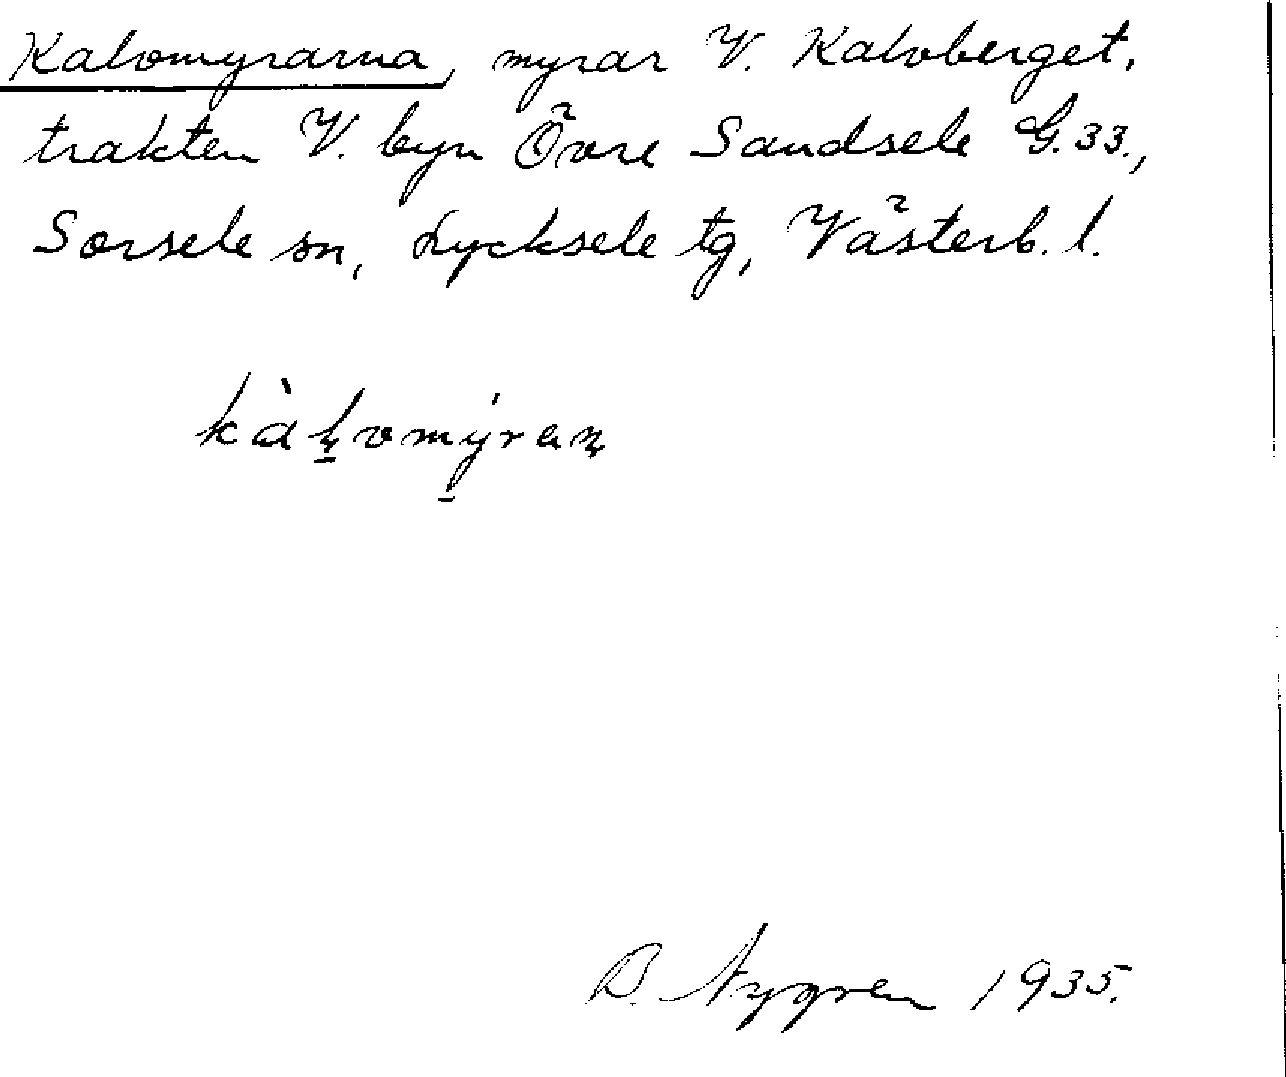 Kalvmyrarna, myrar V. Kalvberget,
trakten V. byn Övre Sandsele G.33.,
Sorsele sn, Lycksele tg, Västerb. l.
kàl̥vmýran
B. Nygren 1935.